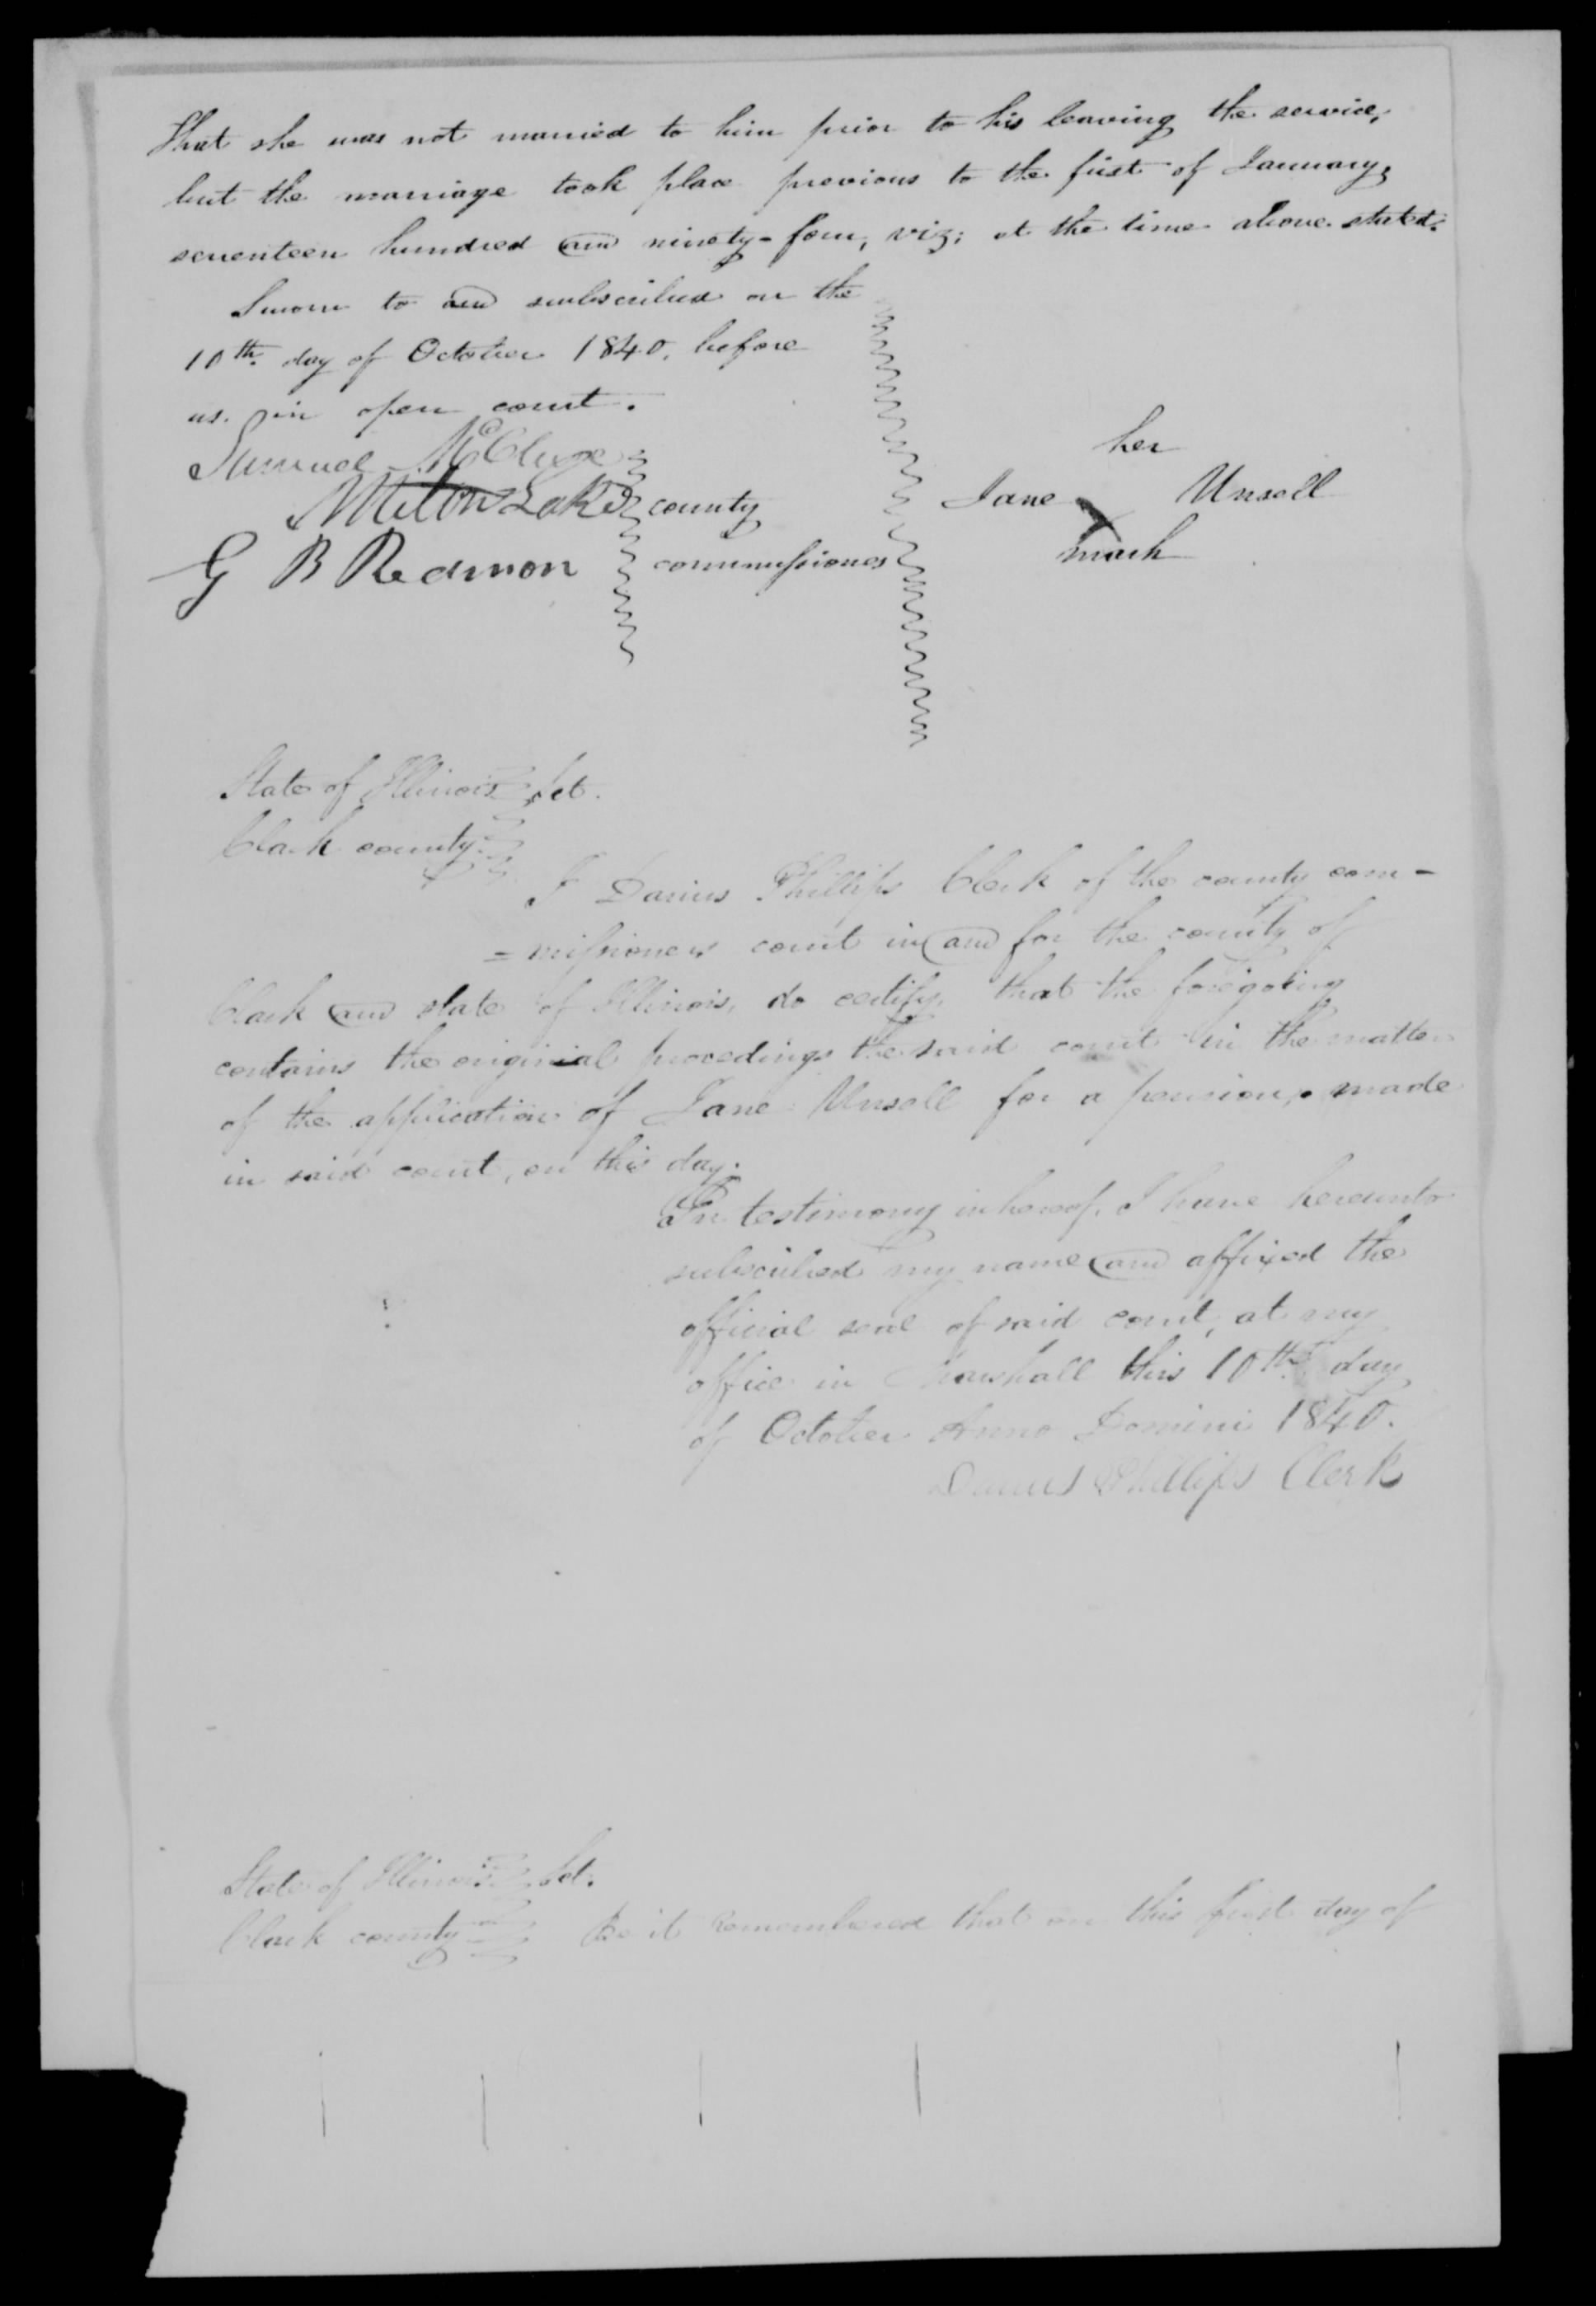 That she was not married to him prior to his leaving the service,
but the marriage took place previous to the first of January,
seventeen hundred and ninety-four, viz; at the time above stated.
Sworn to and subscribed on the
10th day of October 1840, before
us. in open court.
Samuel McClure
Milton Lake county
G B Redmon commissioners
her
Jane X Unsell
mark
State of Illinois Sct.
Clark county
I Darius Phillips Clerk of the county com-
=missioners court in and for the county of
Clark and state of Illinois, do certify, that the foregoing
contains the original procedings the said court in the matter
of the application of Jane Unsell for a pension, made
in said court, on this day.
In testimony whereof, I have hereunto
subscribed my name and affixed the
official seal of said court, at my
office in Marshall this 10th day
of October Anno Domini 1840.
Darius Phillips Clerk
State of Illinois Sct.
Clark county Be it Remembered that on this first day of